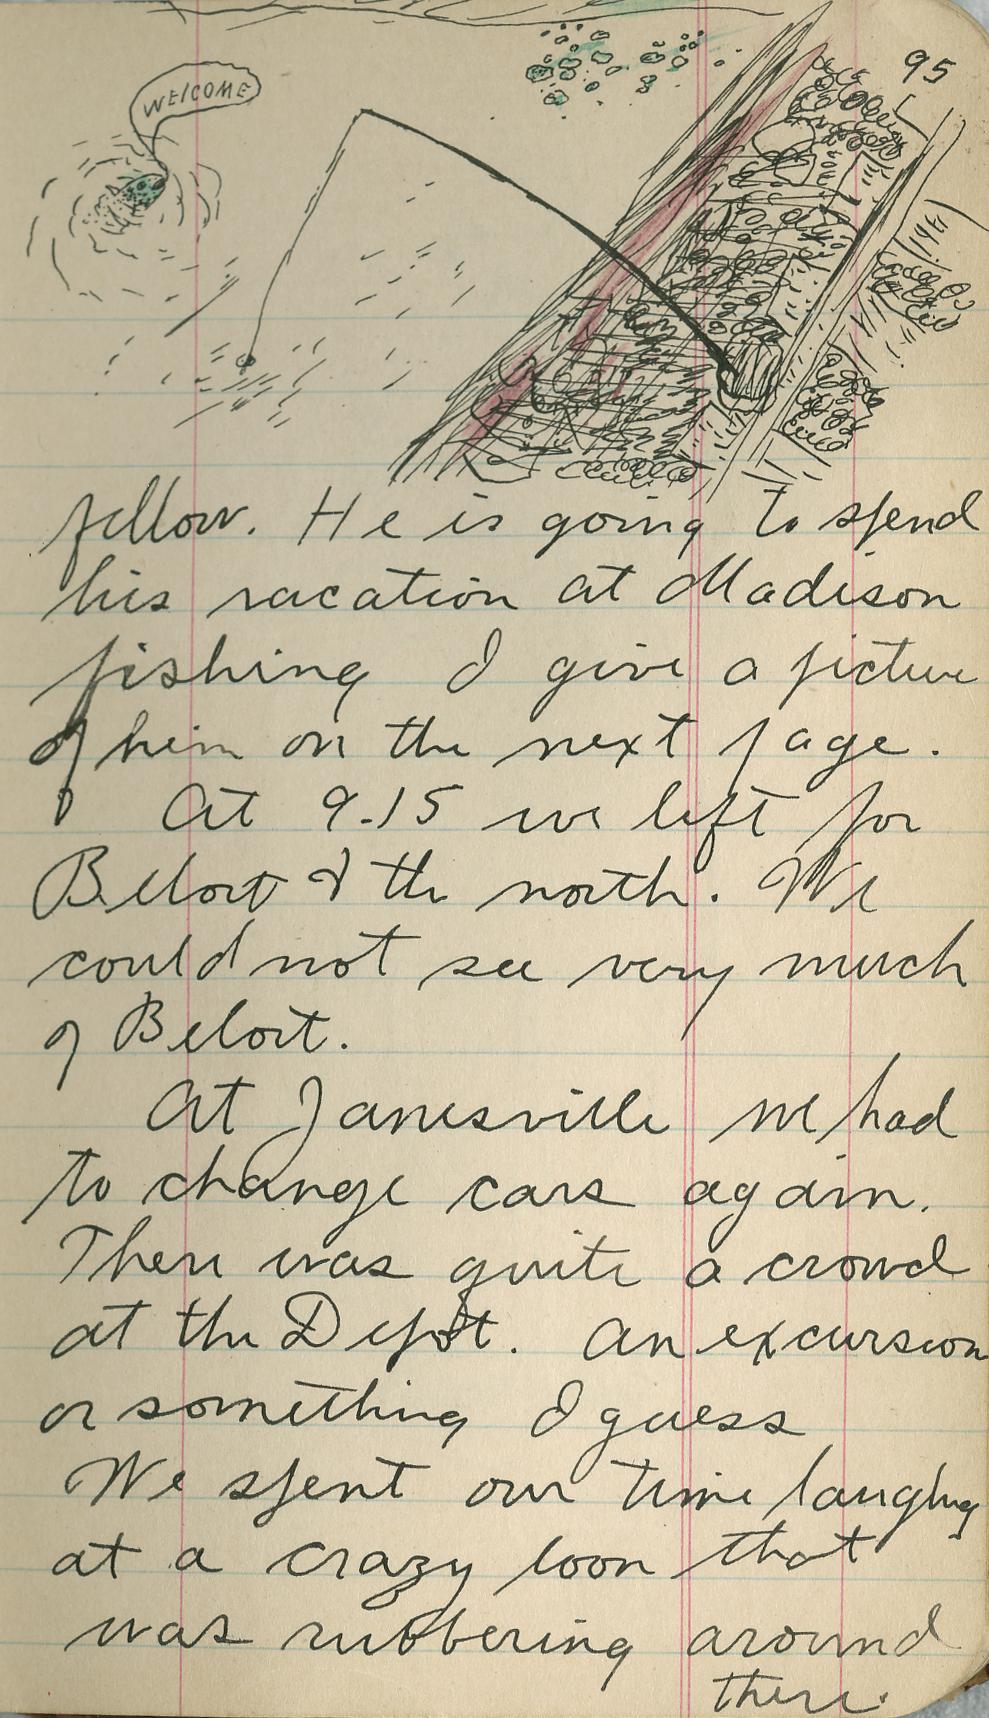 95
WELCOME
fellow. He is going to spend
his vacation at Madison
fishing I give a picture
of him on the next page.
At 9.15 we left for
Beloit & the north. We
could not see very much
of Beloit.
At Janesville we had
to change cars again.
There was quite a crowd
at the Depot. An excursion
or something I guess
We spent our time laughing
at a crazy loon that
was rubbering around
there.